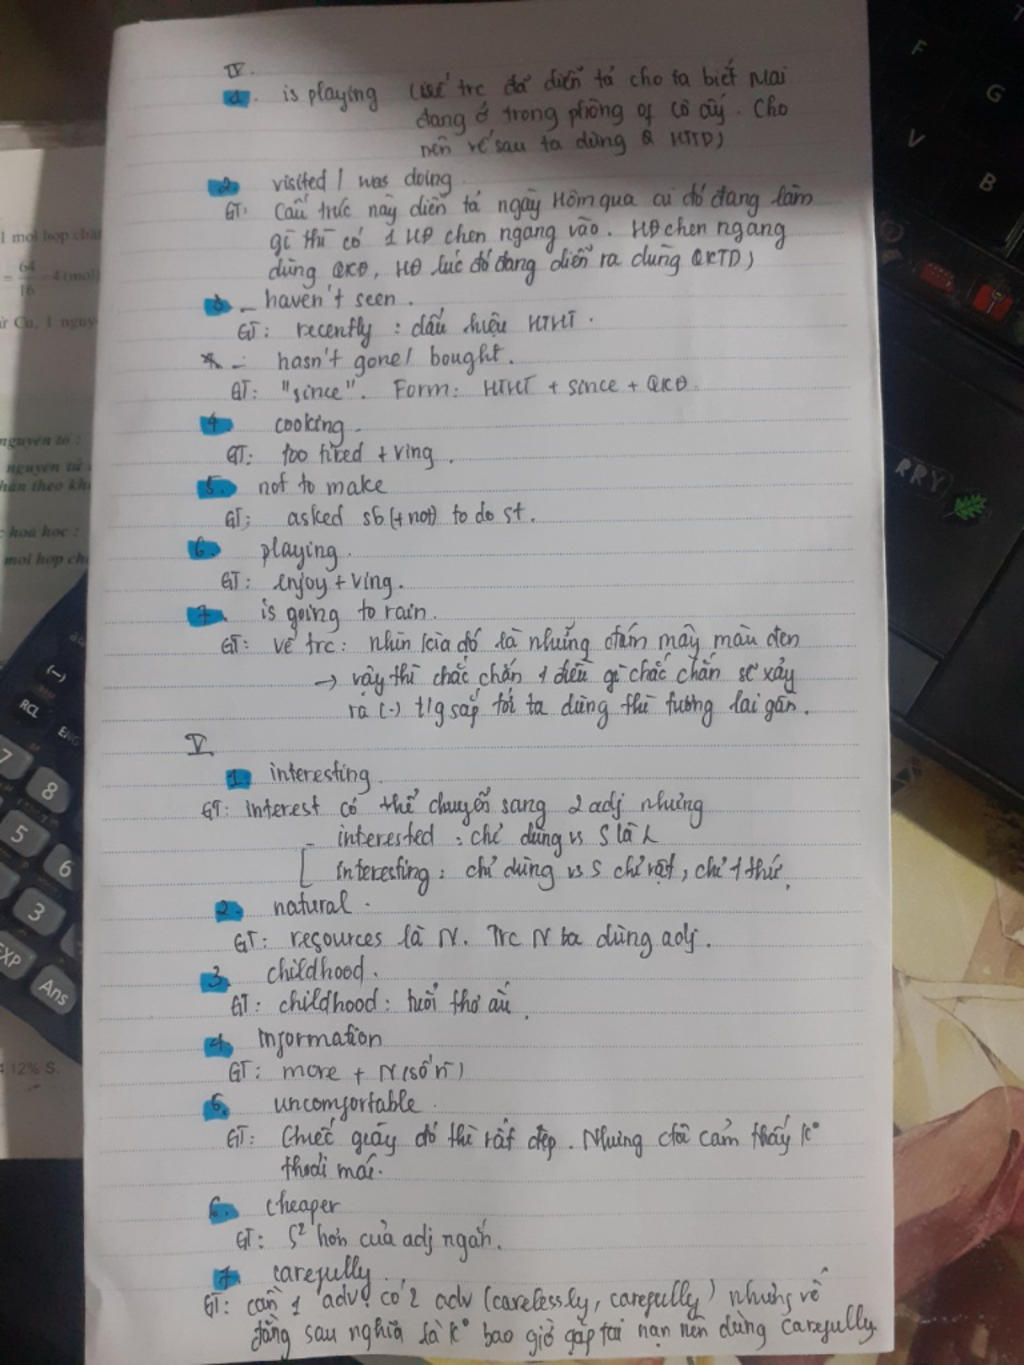 IV.
1. is playing (vế trc đã diễn tả cho ta biết Mai
đang ở trong phòng of cô ấy. Cho
nên vế sau ta dùng HTTD)
2. visited / was doing.
GT: Cấu trúc này diễn tả ngày Hôm qua ai đó đang làm
gì thì có 1 HĐ chen ngang vào. HĐ chen ngang
dùng QKĐ, HĐ lúc đó đang diễn ra dùng QKTD)
3. - haven't seen.
GT: recently: dấu hiệu HTHT.
* - hasn't gone / bought.
GT: "since". Form: HTHT + since + QKĐ.
4. cooking.
GT: too tired + Ving.
5. not to make
GT: asked sb (+ not) to do st.
6. playing.
GT: enjoy + Ving.
7. is going to rain.
GT: vế trc: nhìn kìa đó là những đám mây màu đen
→ vậy thì chắc chắn 1 điều gì chắc chắn sẽ xảy
ra (-) t/g sắp tới ta dùng thì tương lai gần.
V
1. interesting.
GT: interest có thể chuyển sang 2 adj nhưng
- interested: chỉ dùng vs S là
interesting: chỉ dùng vs S chỉ vật, chỉ 1 thứ.
2. natural.
GT: resources là N. Trc N ta dùng adj.
3. childhood.
GT: childhood: tuổi thơ ấu.
4. Information
GT: more + N (số n̄)
5. uncomfortable.
GT: Chiếc giày đó thì rất đẹp. Nhưng cảm thấy k°
thoải mái.
6. cheaper
GT: S² hơn của adj ngắn.
7. carefully.
GT: cần 1 adv có 2 adv (carelessly, carefully) nhưng vế
đằng sau nghĩa là k° bao giờ gặp tai nạn nên dùng carefully.
1 mol hợp chấ
= 64
16
4 (mol)
Cu, 1 nguy
nguyên tố :
nguyên tử
hóa học :
mol hợp ch
12% S.
(-)
RCL
ENG
7
8
5
6
3
EXP
Ans
F
G
V
B
RRY